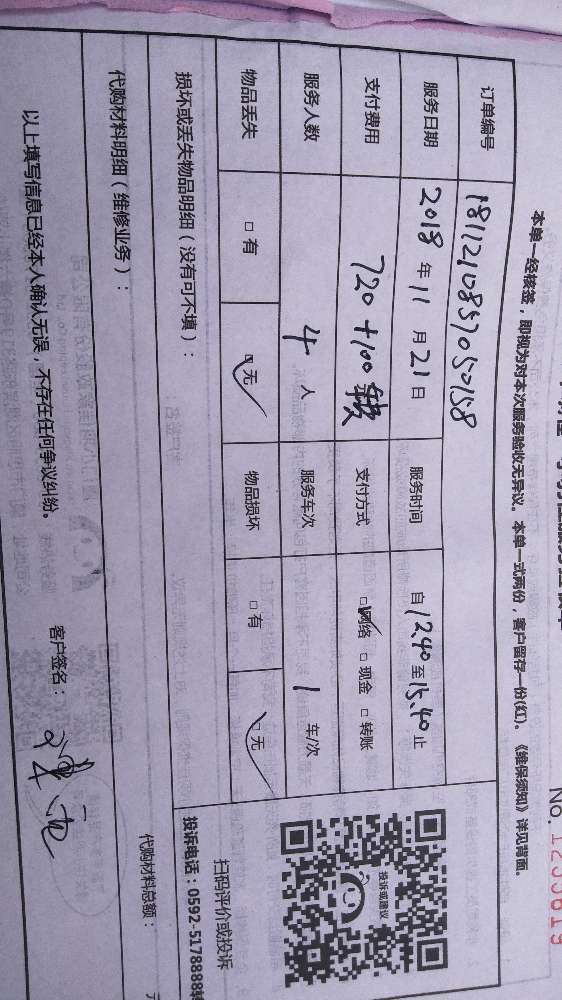 No. 1255619
本单一经核签，即视为对本次服务验收无异议。本单一式两份，客户留存一份(红)。《维保须知》详见背面。
订单编号 181121085705058
服务日期 2018 年 11 月 21 日 服务时间 自 12.40 至 15.40 止
支付费用 720 + 100 支付方式 ☑ 网络 □ 现金 □ 转账
服务人数 4 人 服务车次 1 车/次
物品丢失 □ 有 ☑ 无 物品损坏 □ 有 ☑ 无
损坏或丢失物品明细（没有可不填）：
投诉或建议
扫码评价或投诉
投诉电话：0592-5178888转
代购材料明细（维修业务）：
代购材料总额：
以上填写信息已经本人确认无误，不存在任何争议纠纷。
客户签名：